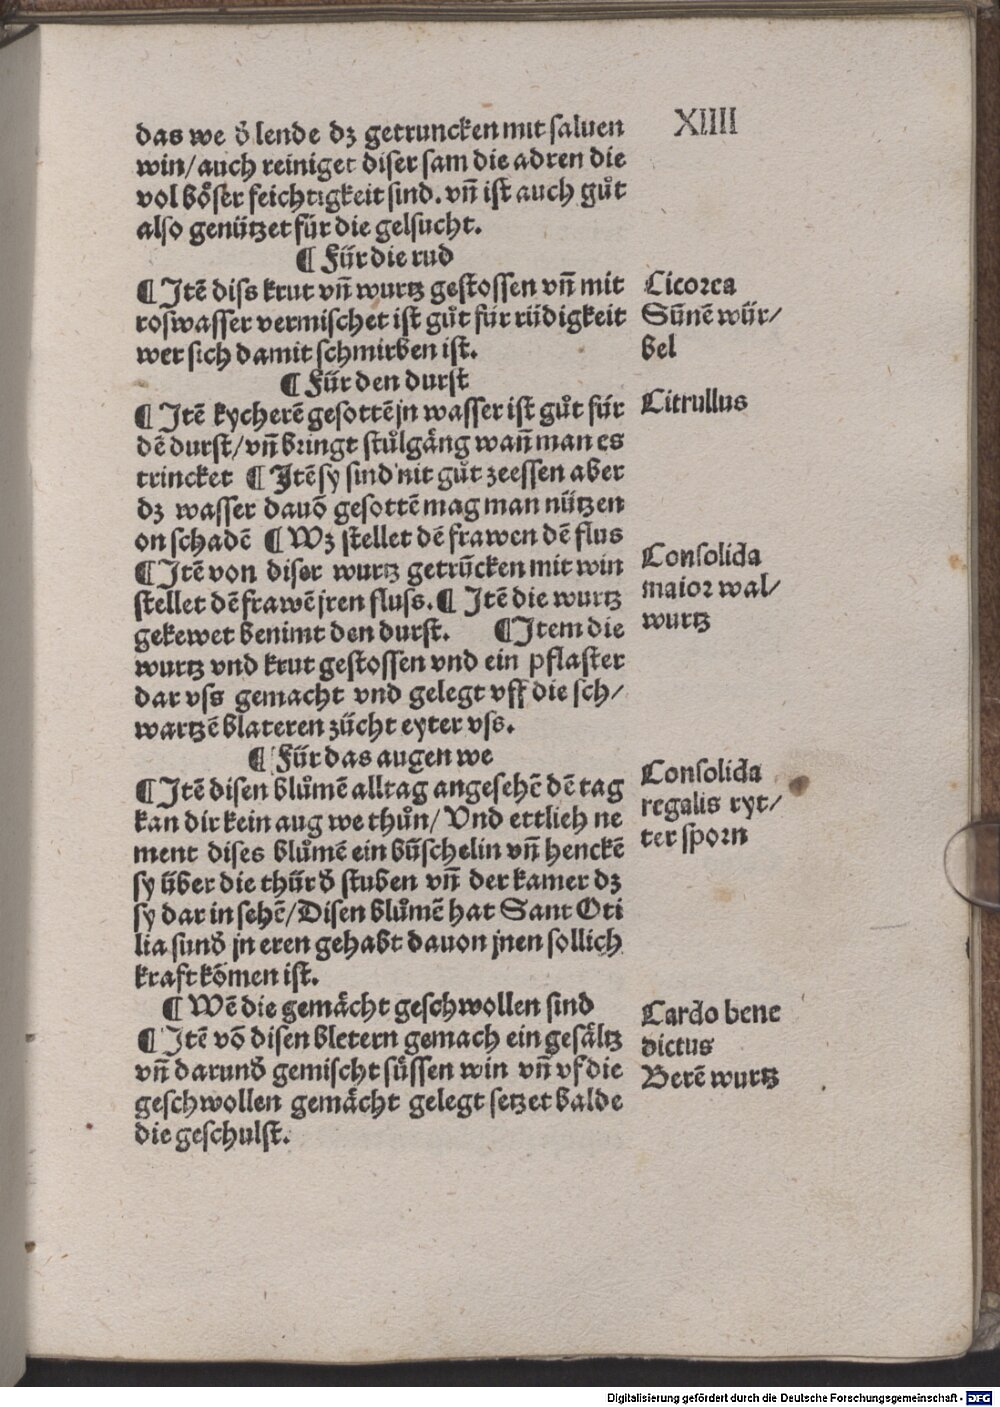 XIIII
das we d̕ lende dꝫ getruncken mit saluen
win/auch reiniget diser sam die adren die
vol bo̊ser feichtigkeit sind. vn̄ ist auch gůt
also genützet für die gelsucht.
¶ Für die rud
¶ Jtē diss krut vn̄ wurtz gestossen vn̄ mit
roswasser vermischet ist gůt für rüdigkeit
wer sich damit schmirben ist.
Cicorea
Sūnē wür/
bel
¶ Für den durst
¶ Jtē kycherē gesottē jn wasser ist gůt für
dē durst/vn̄ bringt stůlgäng wan̄ man es
trincket ¶ Jtē sy sind nit gůt zeessen aber
dꝫ wasser dauō gesottē mag man nützen
on schadē ¶ Wꝫ stellet dē frawen dē flus
Citrullus
¶ Jtē von diser wurtz getrūcken mit win
stellet dē frawē jren fluss. ¶ Jtē die wurtz
gekewet benimt den durst. ¶ Jtem die
wurtz vnd krut gestossen vnd ein pflaster
dar vss gemacht vnd gelegt vff die sch/
wartzē blateren zücht eyter vss.
Consolida
maior wal/
wurtz
¶ Für das augen we
¶ Jtē disen blůmē alltag angesehē dē tag
kan dir kein aug we thůn/ Vnd ettlich ne
ment dises blůmē ein büschelin vn̄ henckē
sy über die thür d̕ stuben vn̄ der kamer dꝫ
sy dar in sehē/Disen blůmē hat Sant Oti
lia sund̕ jn eren gehabt dauon jnen sollich
kraft kōmen ist.
Consolida
regalis ryt/
ter sporn
¶ Wē die gemächt geschwollen sind
¶ Jtē vō disen bletern gemach ein gesältz
vn̄ darund̕ gemischt süssen win vn̄ vf die
geschwollen gemächt gelegt setzet balde
die geschulst.
Cardo bene
dictus
Berē wurtz
Digitalisierung gefördert durch die Deutsche Forschungsgemeinschaft - DFG